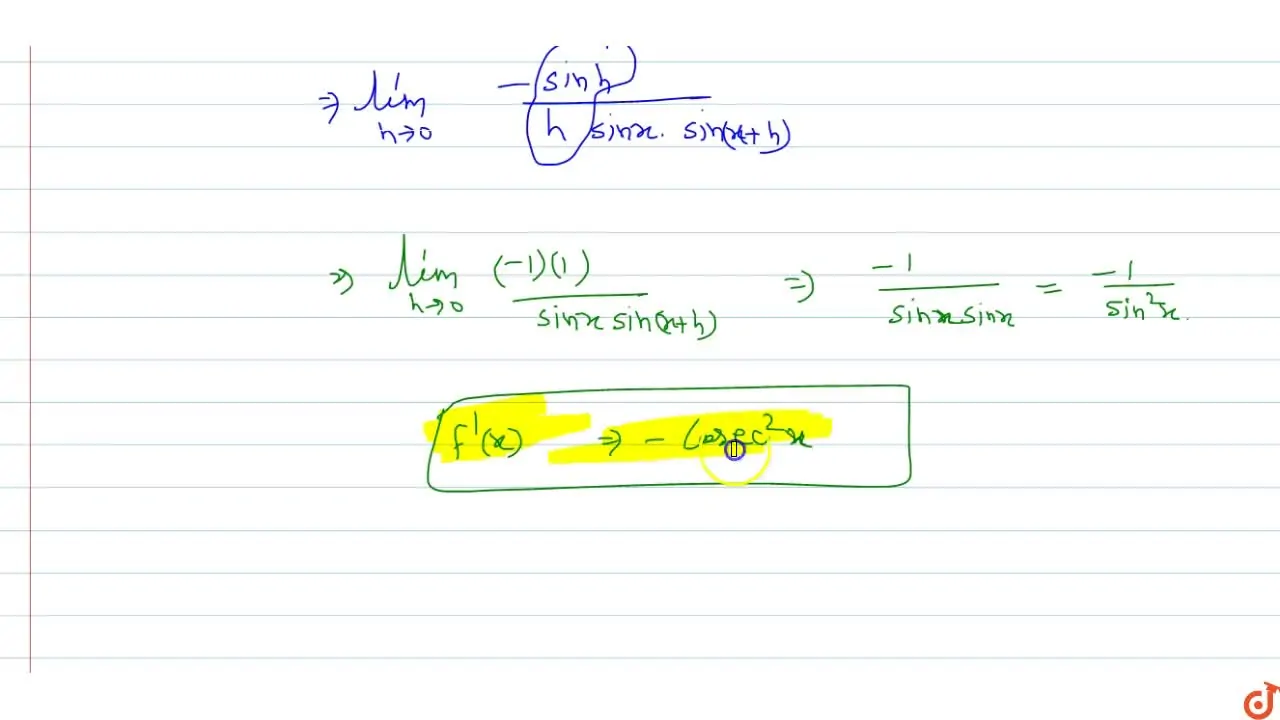 ⇒ lim h→0 -(sin h) / h sinx. sin(x+h)
⇒ lim h→0 (-1)(1) / sinx sin(x+h) ⇒ -1 / sinx sinx = -1 / sin²x.
f'(x) ⇒ - Cosec²x
d